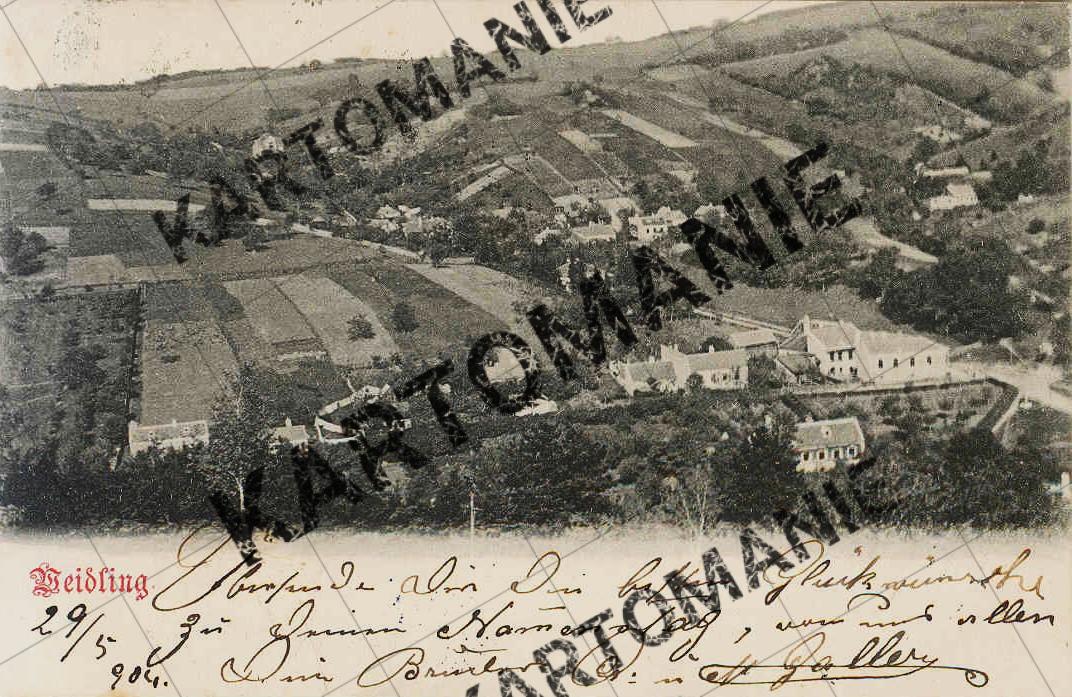 KARTOMANIE
KARTOMANIE
KARTOMANIE
Weidling
29/5 904.
Übersende Dir die besten Glückwünsche
zu Deinen Namenstag, von uns allen
Dein Bruder u Gallery